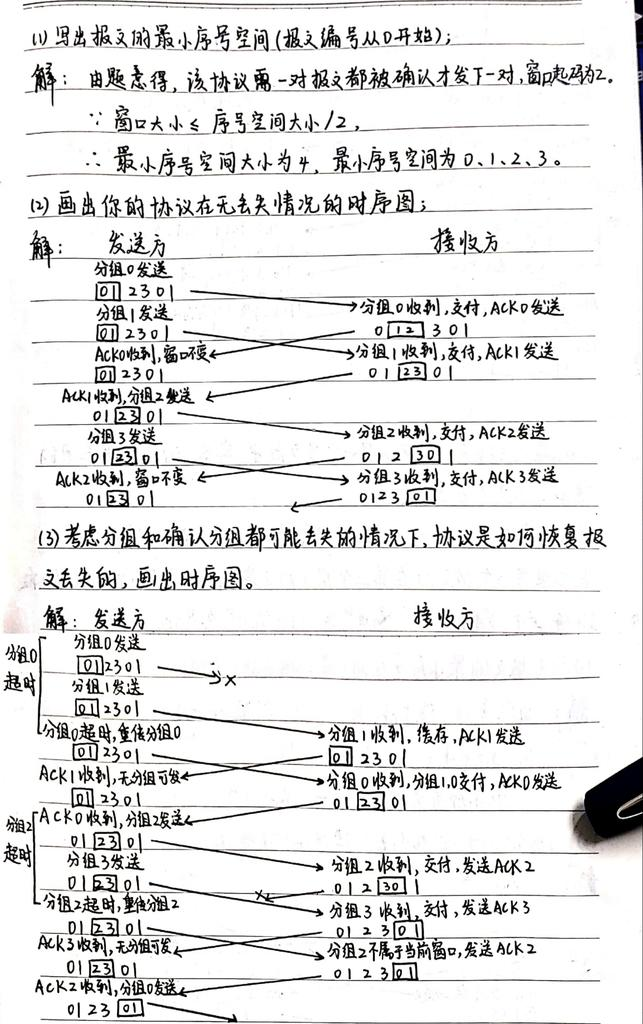 (1) 写出报文的最小序号空间(报文编号从0开始);
解: 由题意得, 该协议需一对报文都被确认才发下一对, 窗口起码为2。
∵ 窗口大小 ≤ 序号空间大小/2,
∴ 最小序号空间大小为4, 最小序号空间为0、1、2、3。
(2) 画出你的协议在无丢失情况的时序图;
解: 发送方 接收方
分组0发送
01 2301
分组0收到,交付,ACK0发送
分组1发送
0 12 301
01 2301
ACK0收到,窗口不变
分组1收到,交付,ACK1发送
01 2301
01 23 01
ACK1收到,分组2发送
01 23 01
分组3发送
分组2收到,交付,ACK2发送
01 23 01
012 30 1
ACK2收到,窗口不变
分组3收到,交付,ACK3发送
01 23 01
0123 01
(3) 考虑分组和确认分组都可能丢失的情况下, 协议是如何恢复报
文丢失的, 画出时序图。
解: 发送方 接收方
分组0发送
分组0
超时
01 2301
x
分组1发送
01 2301
分组0超时,重传分组0
分组1收到, 缓存, ACK1发送
01 2301
01 2301
ACK1收到,无分组可发
分组0收到,分组1,0交付, ACK0发送
01 2301
01 23 01
ACK0收到,分组2发送
分组2
超时
01 23 01
分组3发送
分组2收到, 交付, 发送ACK2
01 23 01
012 30 1
x
分组2超时,重传分组2
分组3收到,交付, 发送ACK3
01 23 01
0123 01
ACK3收到,无分组可发
分组2不属于当前窗口,发送ACK2
01 23 01
0123 01
ACK2收到,分组0发送
0123 01